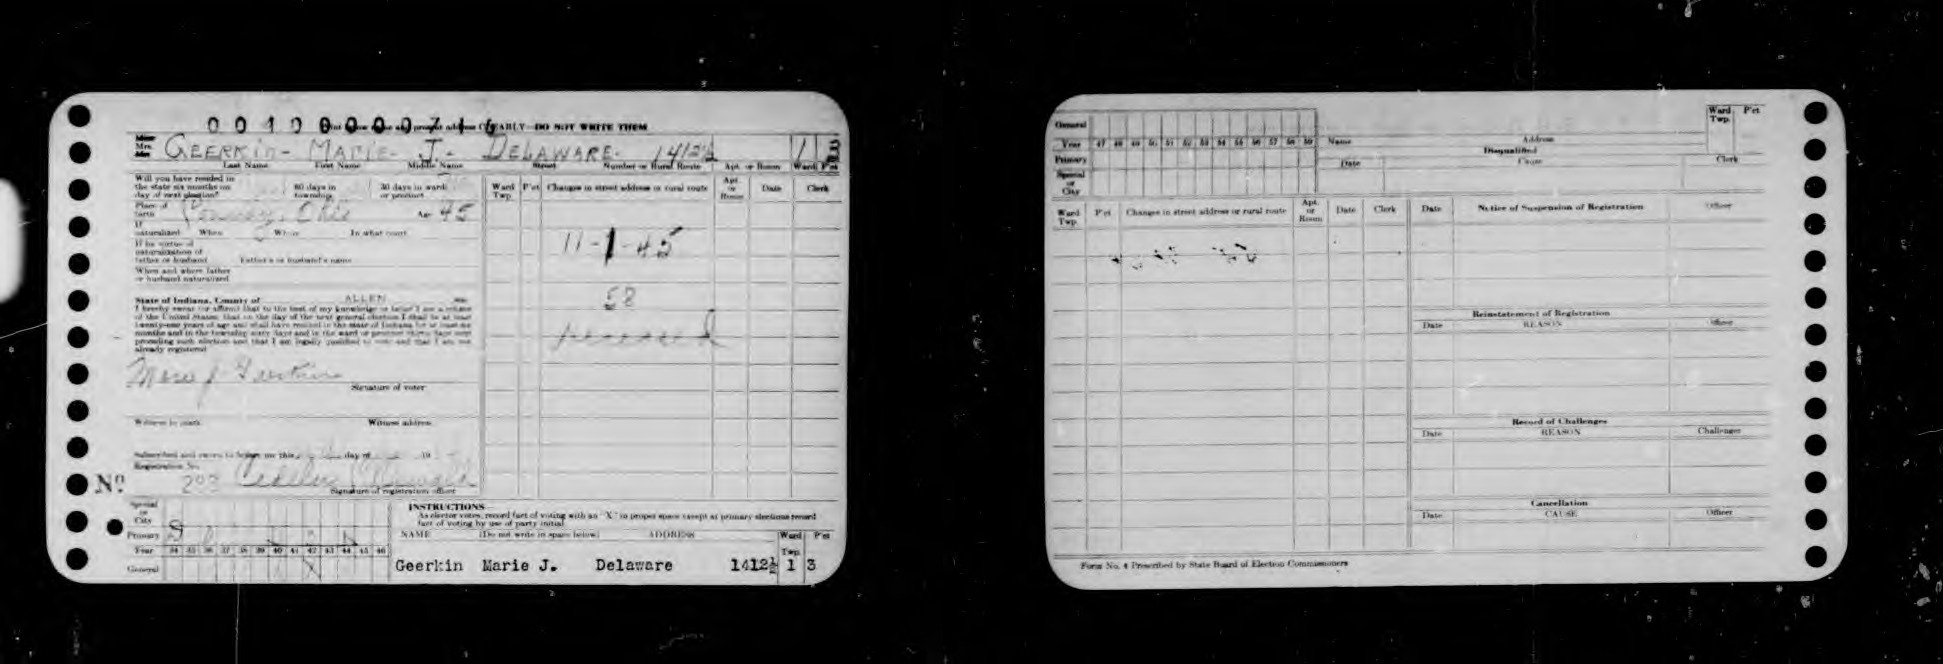 0010000071
DO NOT WRITE THEM
Miss
Mrs.
Mr.
GEERKIN- MARIE- J- DELAWARE- 1412½ 1 3
Last Name First Name Middle Name Street Number or Rural Route Apt. or Room Ward P'ct
Will you have resided in
the state six months on
day of next election?
60 days in
township
30 days in ward
or precinct
Place of
birth Pomeroy, Ohio Age 45
If
naturalized When Where In what court
If by virtue of
naturalization of
father or husband Father's or husband's name
When and where father
or husband naturalized
State of Indiana, County of ALLEN
I hereby swear (or affirm) that to the best of my knowledge or belief I am a citizen
of the United States; that on the day of the next general election I shall be at least
twenty-one years of age and shall have resided in the state of Indiana for at least six
months and in the township sixty days and in the ward or precinct thirty days next
preceding such election and that I am legally qualified to vote and that I am not
already registered
Marie J Geerkin
Signature of voter
Witness to mark Witness address
Subscribed and sworn to before me this day of 19
Registration No.
No 203
Signature of registration officer
Ward
Twp. P'ct Changes in street address or rural route Apt.
or
Room Date Clerk
11-1-45
58
Special
or
City
Primary
Year 34 35 36 37 38 39 40 41 42 43 44 45 46
General
INSTRUCTIONS—
As elector votes, record fact of voting with an "X" in proper space except at primary elections record
fact of voting by use of party initial
NAME (Do not write in space below) ADDRESS Ward
Twp. P'ct
Geerkin Marie J. Delaware 1412½ 1 3
General
Year 47 48 49 50 51 52 53 54 55 56 57 58 59
Primary
Special
or
City
Ward
Twp. P'ct
Name Address
Disqualified
Date Cause Clerk
Ward
Twp. P'ct Changes in street address or rural route Apt.
or
Room Date Clerk
Date Notice of Suspension of Registration Officer
Reinstatement of Registration
Date REASON Officer
Record of Challenges
Date REASON Challenger
Cancellation
Date CAUSE Officer
Form No. 4 Prescribed by State Board of Election Commissioners